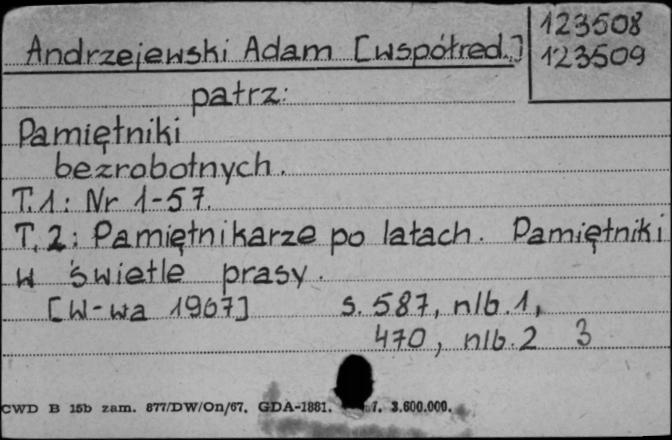 Andrzejewski Adam [współred.]
123508
123509
patrz:
Pamiętniki
bezrobotnych.
T.1: Nr 1-57.
T.2: Pamiętnikarze po latach. Pamiętniki
w świetle prasy.
[W-wa 1967] s. 587, nlb. 1,
470, nlb. 2 3
CWD B 15b zam. 877/DW/On/67. GDA-1881. 7. 3.600.000.